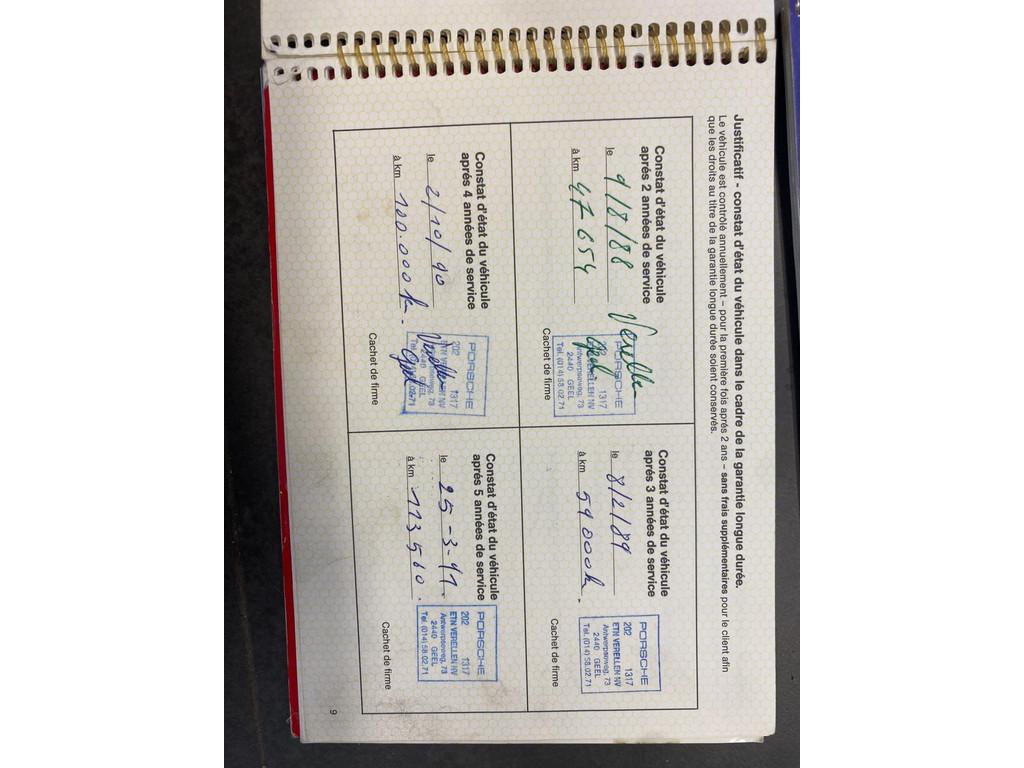 Justificatif - constat d'état du véhicule dans le cadre de la garantie longue durée.
Le véhicule est contrôlé annuellement – pour la première fois aprés 2 ans – sans frais supplémentaires pour le client afin
que les droits au titre de la garantie longue durée soient conservés.
Constat d'état du véhicule
aprés 2 années de service
le 9/8/88
à km 47654
Verellen
Geel
PORSCHE
1317
VERELLEN NV
Antwerpseweg, 73
2440 GEEL
Tel. (014) 58.02.71
Cachet de firme
Constat d'état du véhicule
aprés 3 années de service
le 8/2/89
à km 59000k.
PORSCHE
202 1317
ETN VERELLEN NV
Antwerpseweg, 73
2440 GEEL
Tel. (014) 58.02.71
Cachet de firme
Constat d'état du véhicule
aprés 4 années de service
le 2/10/90
à km 100.000k.
PORSCHE
202 1317
ETN VERELLEN NV
Verellen
Geel
73
2440 GEEL
Tel. 02.71
Cachet de firme
Constat d'état du véhicule
aprés 5 années de service
le 25-3-91.
à km 113560.
PORSCHE
202 1317
ETN VERELLEN NV
Antwerpseweg, 73
2440 GEEL
Tel. (014) 58.02.71
Cachet de firme
9